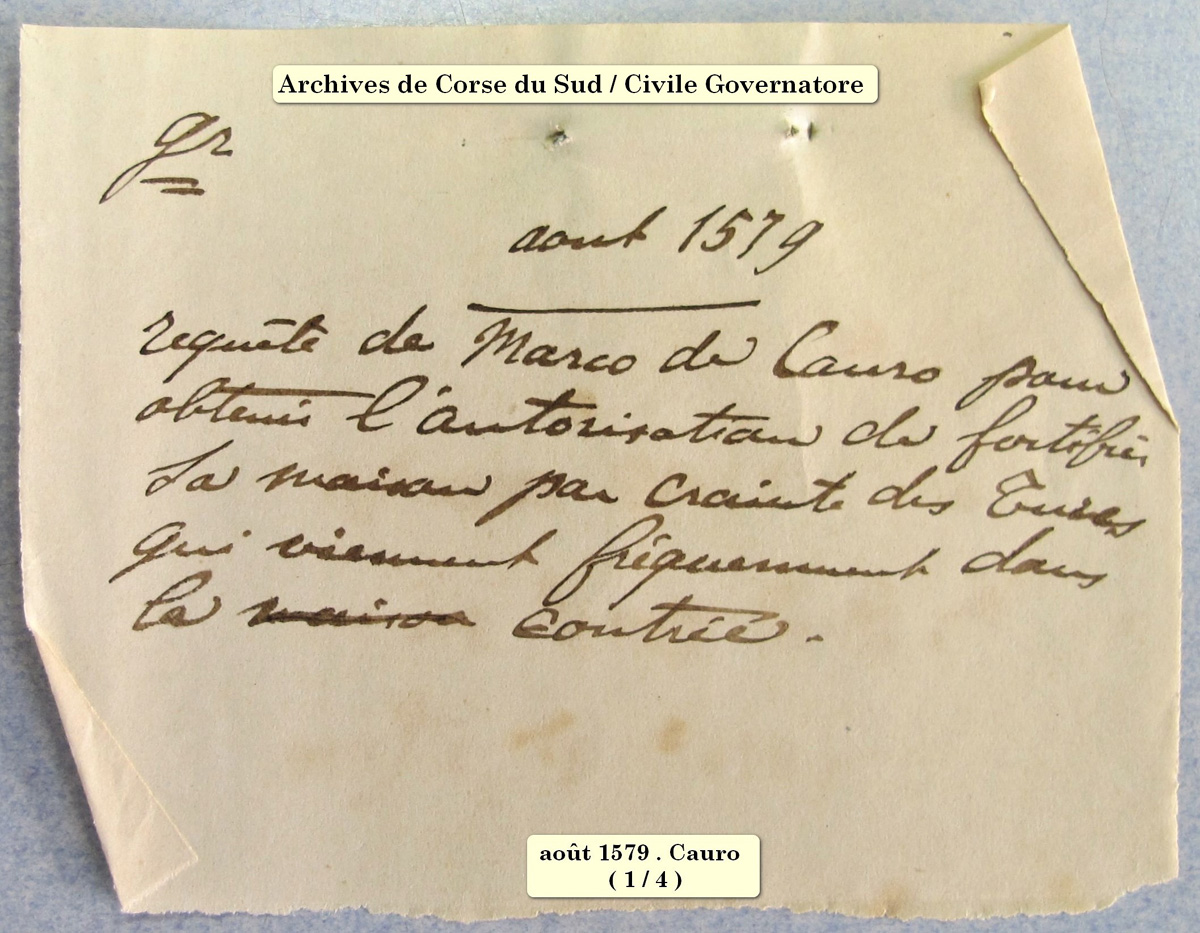 Archives de Corse du Sud / Civile Governatore
gr
aout 1579
requête de Marco de Cauro pour
obtenir l'autorisation de fortifier
sa maison par crainte des Turcs
qui viennent fréquemment dans
la maison contrée.
août 1579 . Cauro
( 1 / 4 )